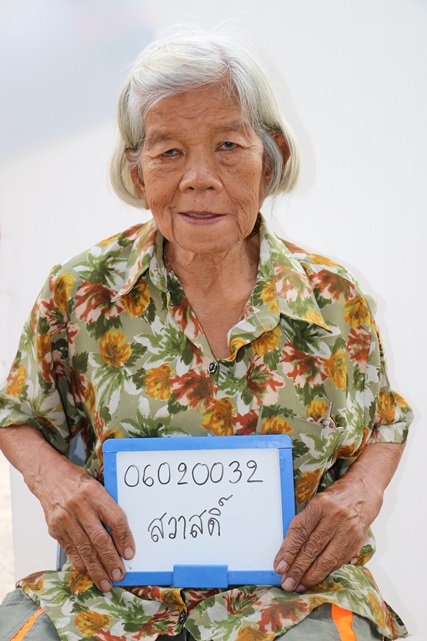 06020032
สวาสดิ์